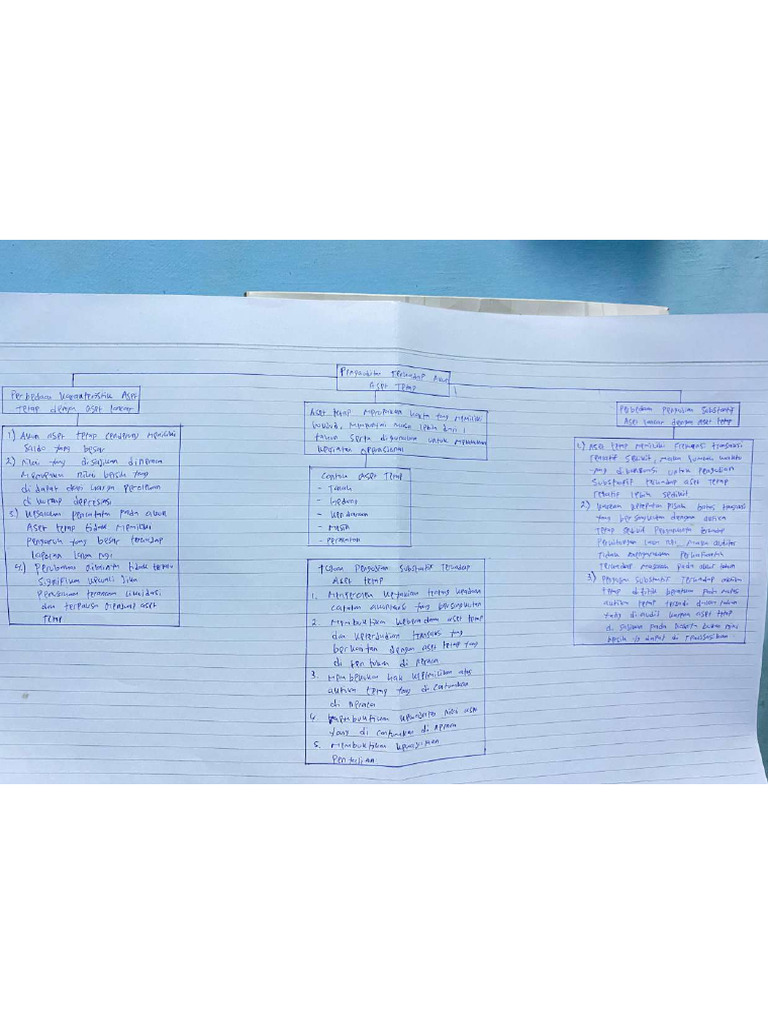 Pengauditan Terhadap Akun
Aset Tetap
Perbedaan Karakteristik Aset
Tetap dengan aset lancar
1) Akun aset tetap cenderung memiliki
Saldo yang besar
2) Nilai yang disajikan di neraca
Merupakan nilai bersih yang
di dapat dari harga perolehan
di kurangi depresiasi
3) Kesalahan pencatatan pada akun
Aset tetap tidak memiliki
pengaruh yang besar terhadap
laporan laba rugi
4.)
signifikan kecuali jika
Perusahaan terancam likuidasi
dan terpaksa menjual aset
Tetap
Aset tetap merupakan harta yang memiliki
wujud, mempunyai masa lebih dari 1
tahun serta digunakan untuk melakukan
kegiatan operasional
Contoh Aset Tetap
- Tanah
- Gedung
- Kendaraan
- Mesin
- Peralatan
Tujuan Pengujian Substantif Terhadap
Aset tetap
1. Memperoleh keyakinan tentang keandalan
catatan akuntansi yang bersangkutan
2. Membuktikan keberadaan aset tetap
dan keterjadian transaksi yang
berkaitan dengan aset tetap yang
di cantumkan di neraca
3. Membuktikan hak kepemilikan atas
aktiva tetap yang di cantumkan
di neraca
4. Membuktikan kewajaran nilai aset
yang di cantumkan di neraca
5. Membuktikan kewajaran
Penyajian
Perbedaan Pengujian Substantif
Aset lancar dengan aset tetap
1) Aset tetap memiliki frekuensi transaksi
relatif sedikit, maka jumlah waktu
yang dikonsumsi untuk pengujian
Substantif terhadap aset tetap
relatif lebih sedikit
2) Karena ketepatan pisah batas transaksi
yang bersangkutan dengan aktiva
tetap kecil pengaruhnya terhadap
Perhitungan laba rugi, maka auditor
Tidak
Terhadap
3) Pengujian substantif terhadap aktiva
tetap
aktiva tetap
yang di audit karena aset tetap
di sajikan pada